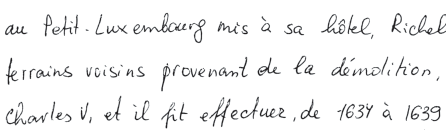 au Petit-Luxembourg mis à sa hôtel, Richel
terrains voisins provenant de la démolition,
Charles V, et il fit effectuer, de 1634 à 1639